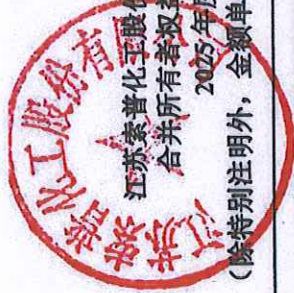 江苏索普化工股份
合并所有者权益
2025 年度
(除特别注明外，金额单
江苏索普化工股份有